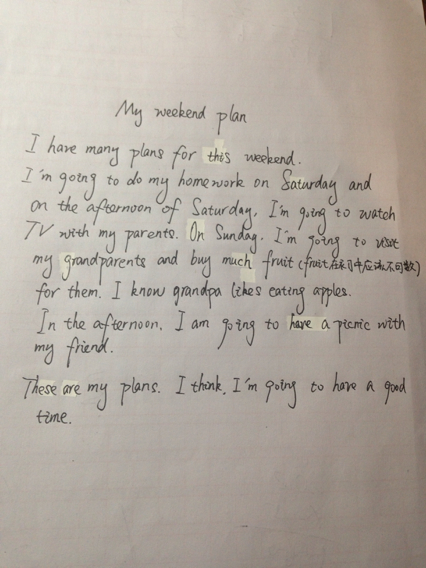 My weekend plan
I have many plans for this weekend.
I'm going to do my homework on Saturday and
on the afternoon of Saturday, I'm going to watch
TV with my parents. On Sunday, I'm going to visit
my grandparents and buy much fruit (fruit在本句中应该不可数)
for them. I know grandpa likes eating apples.
In the afternoon, I am going to have a picnic with
my friend.
These are my plans. I think, I'm going to have a good
time.